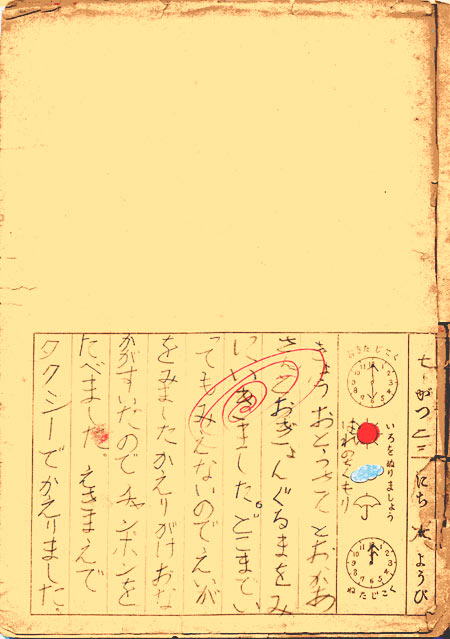 七がつ二三にち水ようび
おきたじこく
いろをぬりましょう
はれのちくもり
ねたじこく
きょうおとうさんとおかあ
さんとおぎょんぐるまをみ
にいきました。どこまでい
ってもみえないのでえいが
をみましたかえりがけおな
かがすいたのでチャンポンを
たべました。えきまえで
タクシーでかえりました。